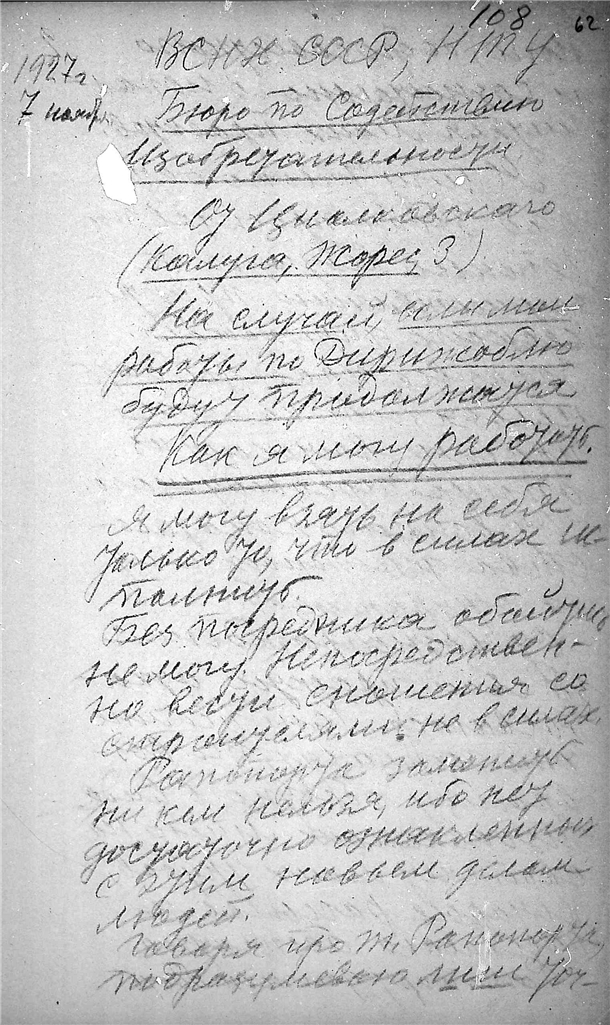 108
62
1927 г
7 нояб.
ВСНХ СССР, НТУ
Бюро по Содействию
Изобретательности
От Циолковского
(Калуга, Жорес, 3)
На случай, если мои
работы по Дирижаблю
будут продолжаться
Как я могу работать.
Я могу взять на себя
только то, что в силах ис-
полнить.
Без посредника обойтись
не могу. Непосредствен-
но вести сношения со
строителями не в силах.
Рапопорта заменить
ни кем нельзя, ибо нет
достаточно ознакомленных
с этим новым делом
людей.
Говоря про т. Рапопорта,
подразумеваю лиш